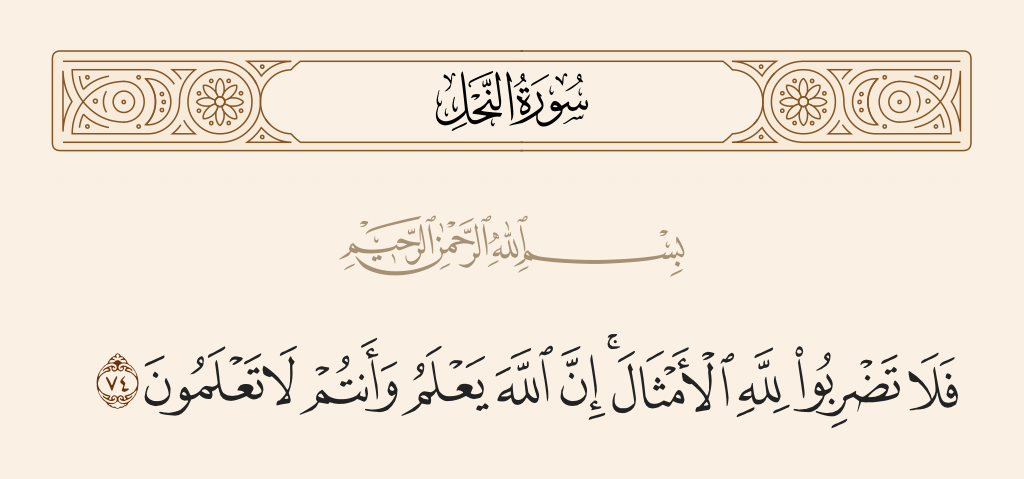 سُورَةُ النَّحْلِ
بِسْمِ ٱللَّهِ ٱلرَّحْمَٰنِ ٱلرَّحِيمِ
فَلَا تَضْرِبُوا۟ لِلَّهِ ٱلْأَمْثَالَ ۚ إِنَّ ٱللَّهَ يَعْلَمُ وَأَنتُمْ لَا تَعْلَمُونَ ٧٤